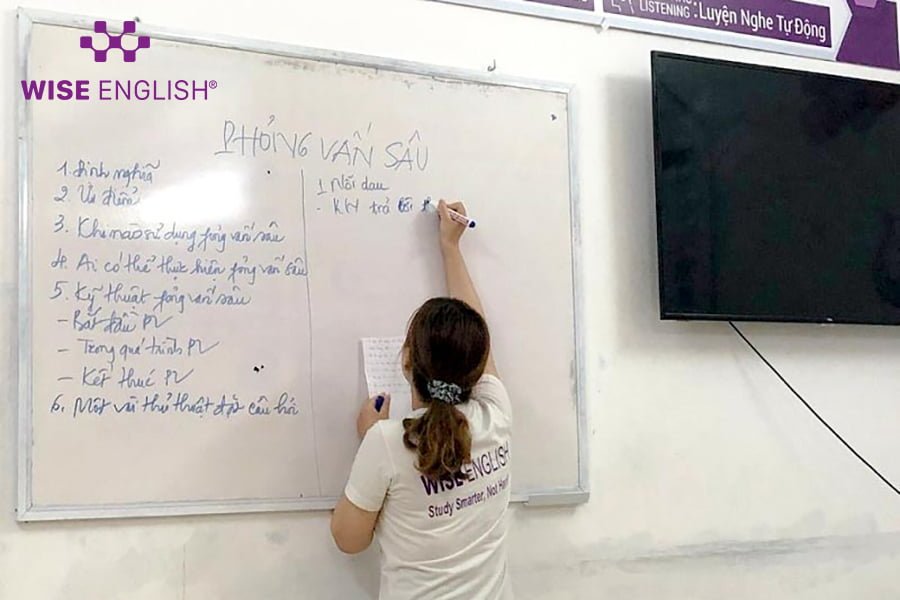 WISE ENGLISH®
LISTENING : Luyện Nghe Tự Động
PHỎNG VẤN SÂU
1. Định nghĩa
2. Ưu điểm
3. Khi nào sử dụng fỏng vấn sâu
4. Ai có thể thực hiện fỏng vấn sâu
5. Kỹ thuật fỏng vấn sâu
- Bắt đầu PV
- Trong quá trình PV
- Kết thúc PV
6. Một vài thủ thuật đặt câu hỏi
1 Nỗi đau
- KN trả lời
WISE ENGLISH
Study Smarter, Not